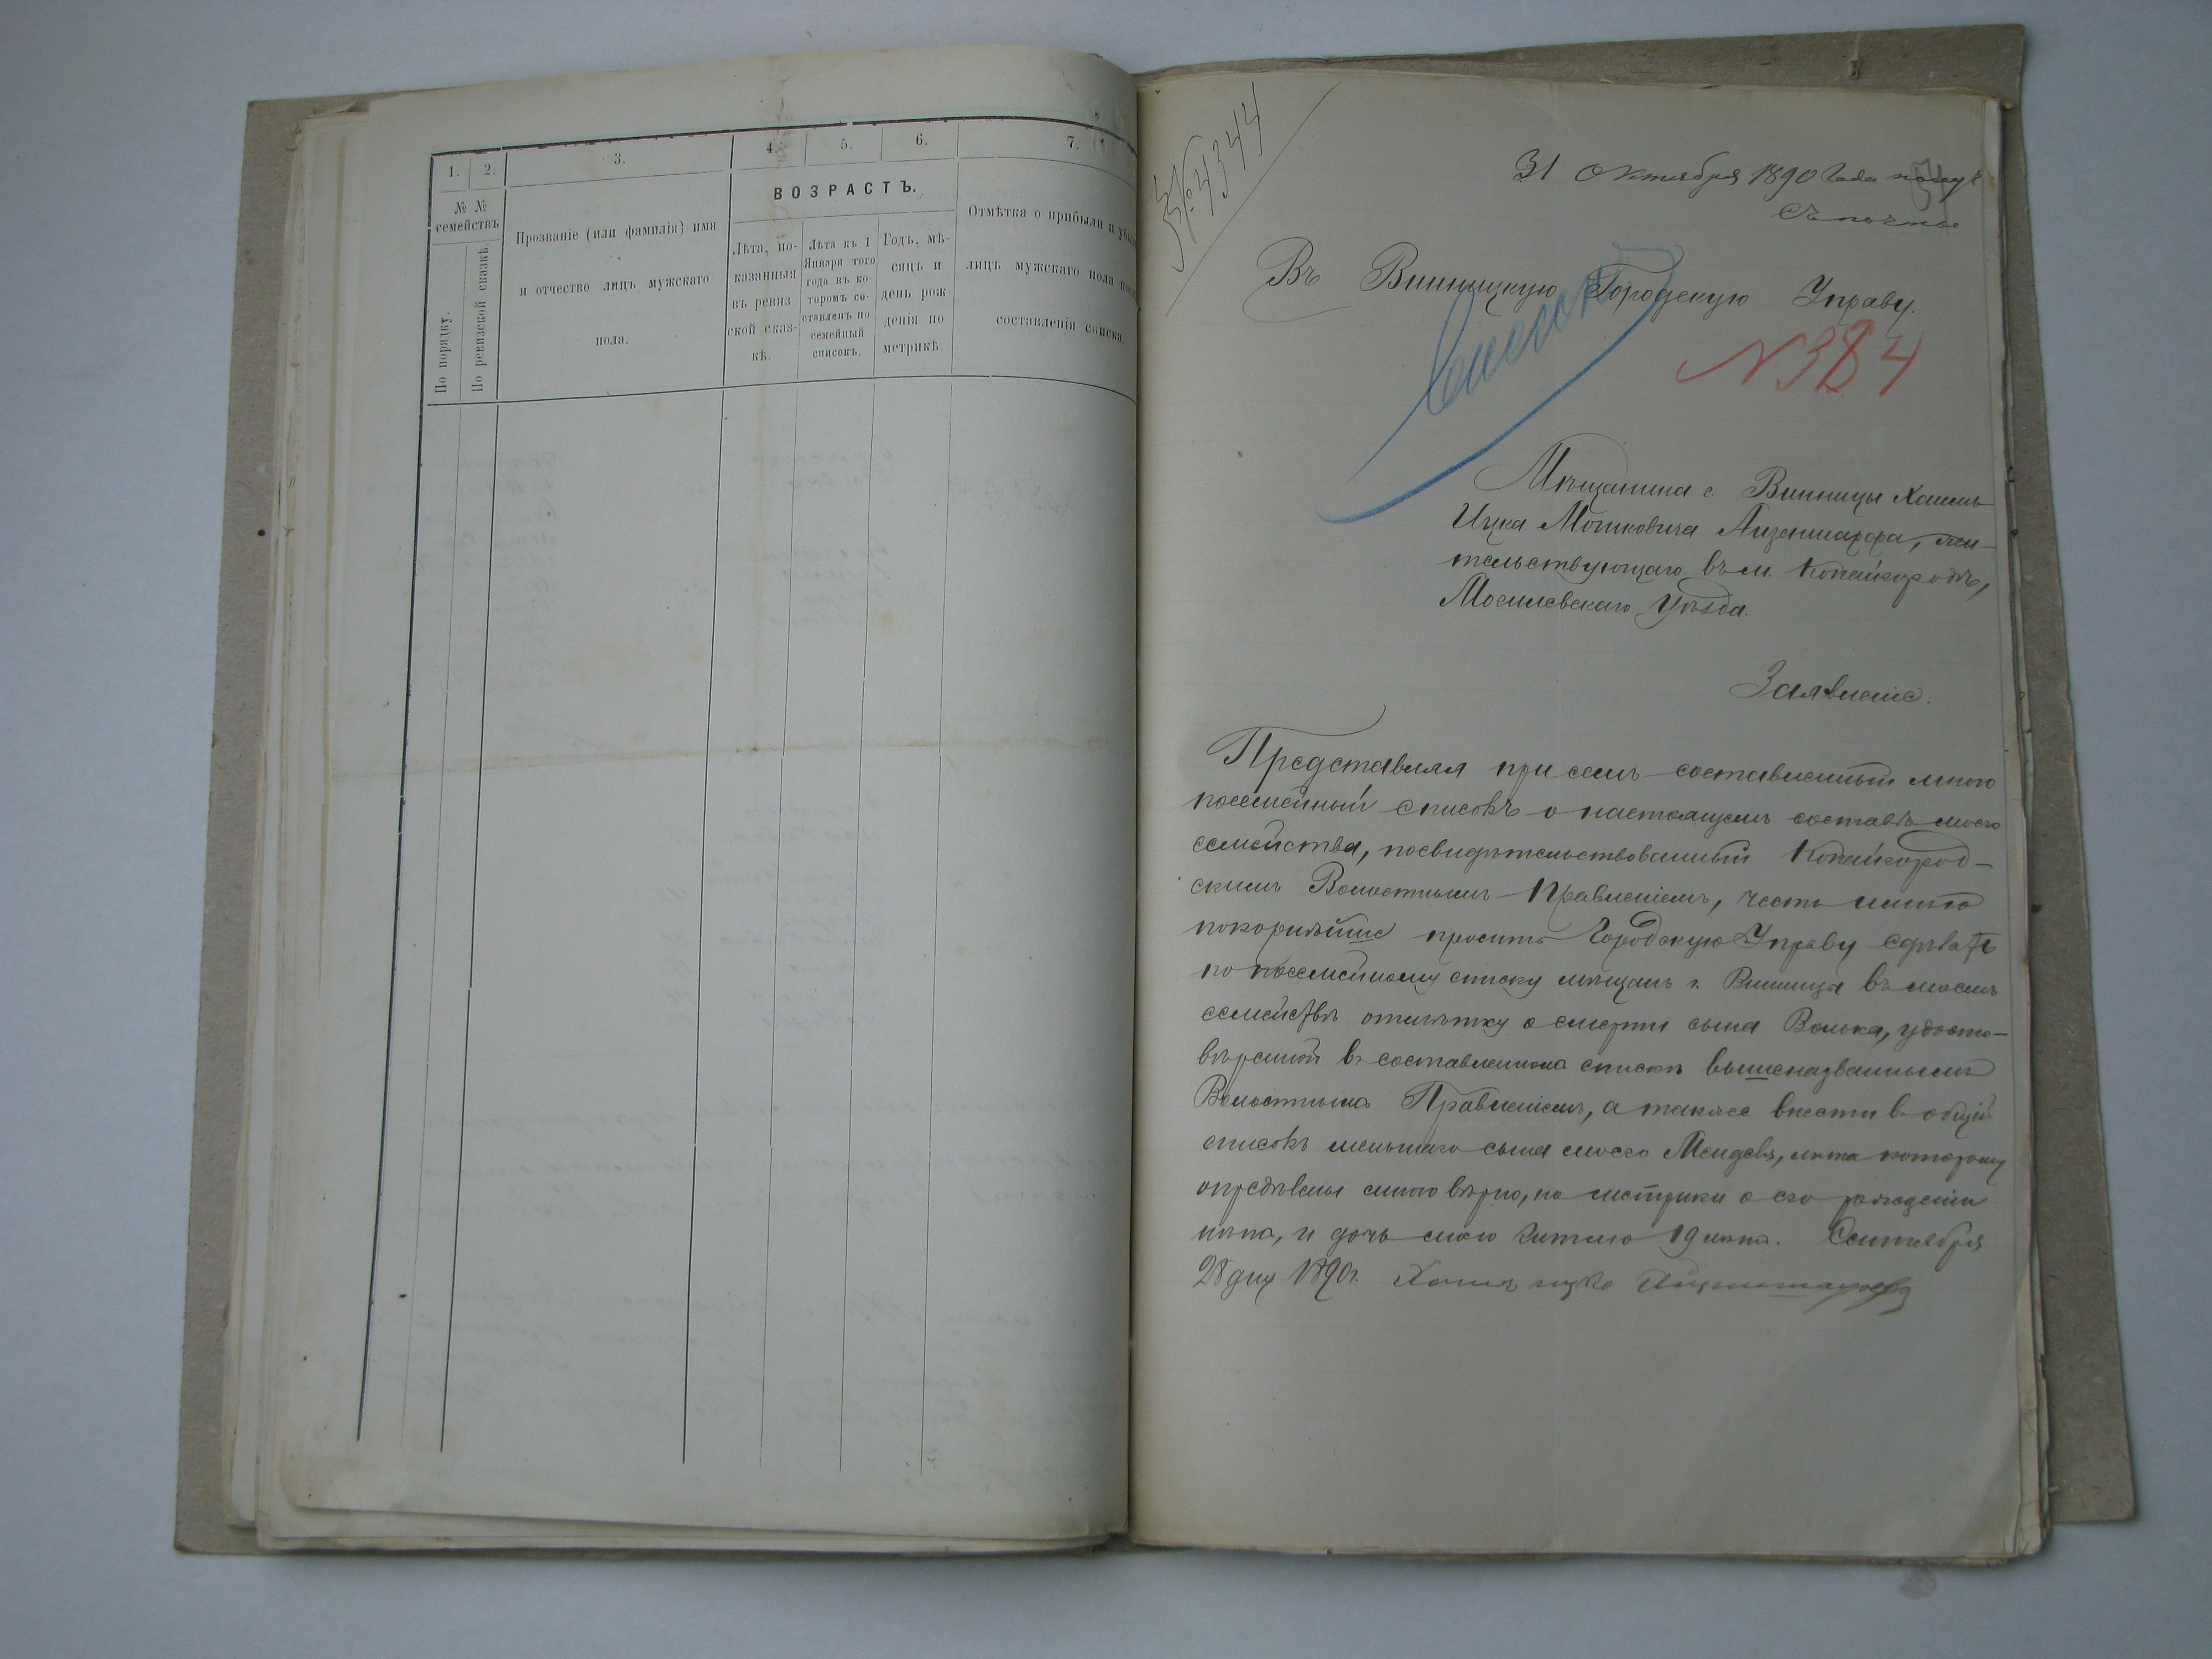 1.
2.
3.
4.
5.
6.
7.
№ №
семействъ
По порядку.
По ревизской сказкѣ.
Прозваніе (или фамилія) имя
и отчество лицъ мужскаго
пола.
ВОЗРАСТЪ.
Лѣта, по-
казанныя
въ ревиз
ской сказ-
кѣ.
Лѣта къ 1
Января того
года въ ко-
торомъ со-
ставленъ по
семейный
списокъ.
Годъ, мѣ-
сяцъ и
день рож
денія по
метрикѣ.
Отмѣтка о прибыли и
лицъ мужскаго пола
составленія списка.
4344
31 Октября 1890 года
Въ Винницкую Городскую Управу.
Списокъ
N 384
Мѣщанина г. Винницы Хаимъ
Ицка Мошковича Айзеншарфа, жи-
тельствующаго въ м. Копайгородѣ,
Могилевскаго Уѣзда.
Заявленіе.
Представляя при семъ составленный мною
посемейный списокъ о настоящемъ составѣ моего
семейства, посвидѣтельствованный Копайгород-
скимъ Волостнымъ Правленіемъ, честь имѣю
покорнѣйше просить Городскую Управу сдѣлать
по посемейному списку мѣщанъ г. Винница въ моемъ
семействѣ отмѣтку о смерти сына Волька, удосто-
вѣренной въ составленномъ спискѣ вышеназваннымъ
Волостнымъ Правленіемъ, а также внести въ общій
списокъ меньшаго сына моего Менделя, лѣта которому
опредѣлены мною вѣрно, но метрики о его рожденіи
нѣтъ, и дочь мою 19 лѣтъ. Сентября
28 дня 1890 г. Хаимъ Ицко Айзеншарфъ